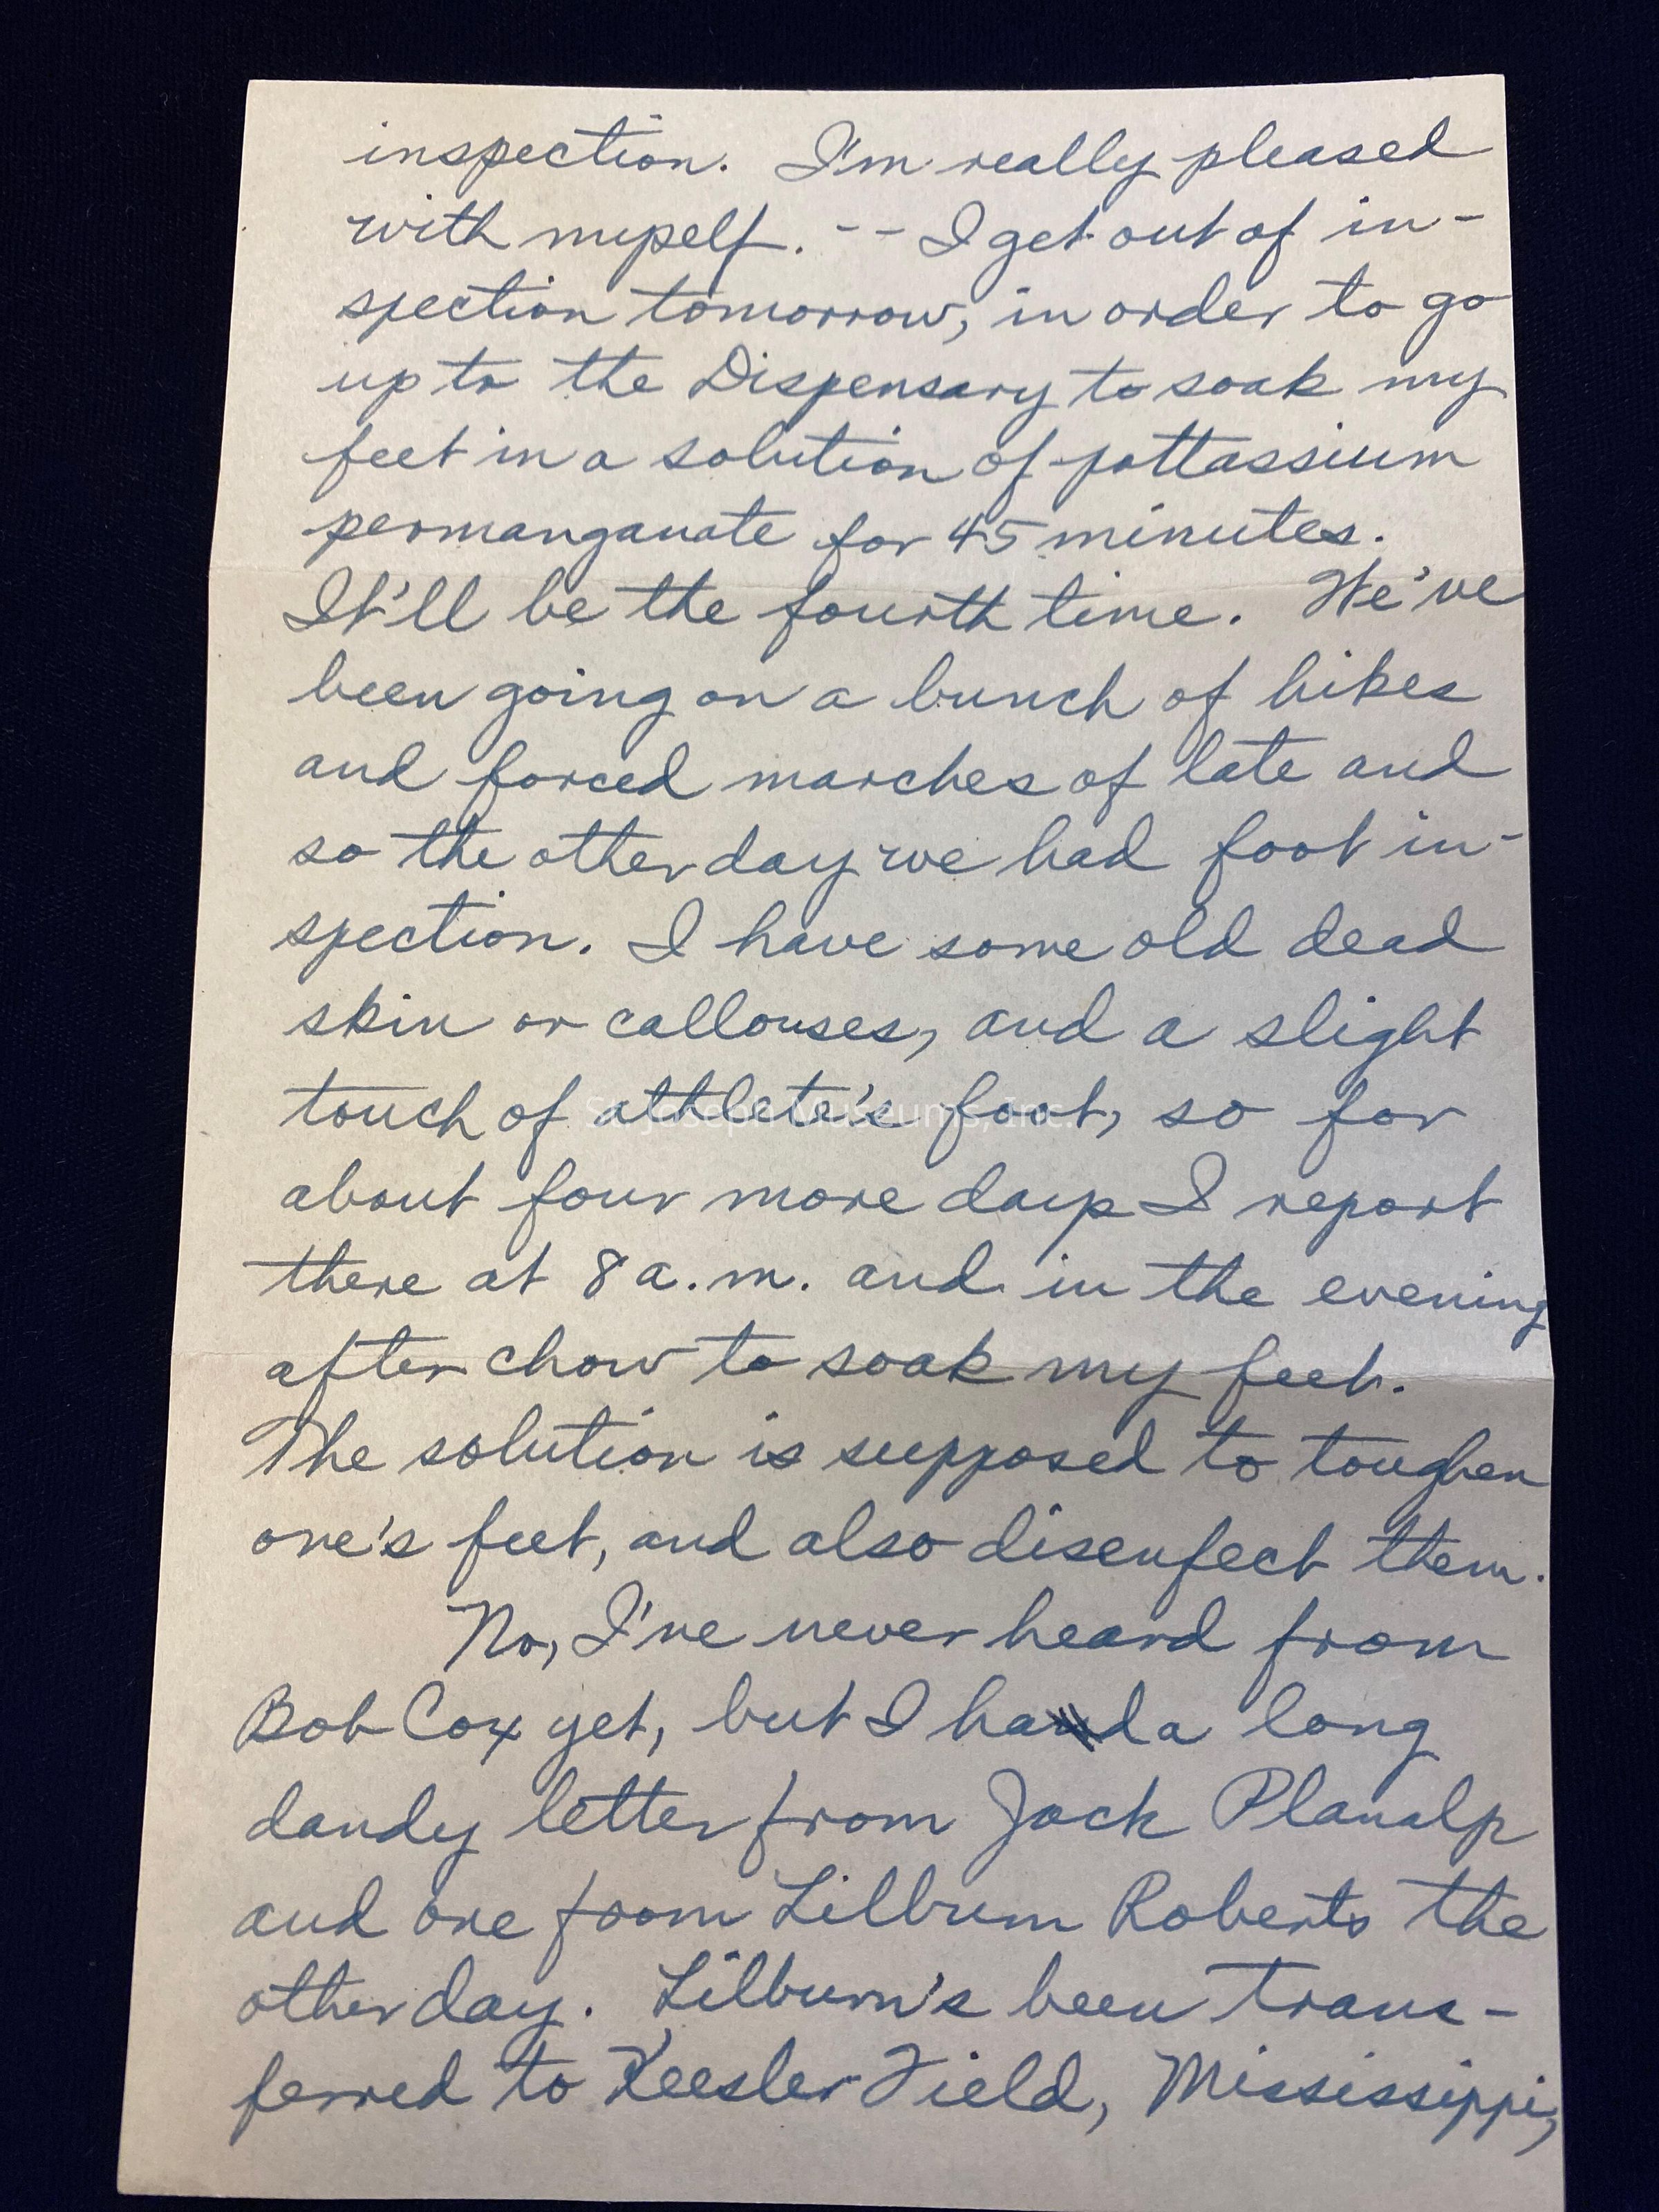 inspection. I'm really pleased
with myself. -- I get out of in-
spection tomorrow, in order to go
up to the Dispensary to soak my
feet in a solution of pottassium
permanganate for 45 minutes.
It'll be the fourth time. We've
been going on a bunch of hikes
and forced marches of late and
so the other day we had foot in-
spection. I have some old dead
skin or callouses, and a slight
touch of athlete's foot, so for
St. Joseph Museums, Inc.
about four more days I report
there at 8 a.m. and in the evening
after chow to soak my feet.
The solution is supposed to toughen
one's feet, and also disenfect them.
No, I've never heard from
Bob Cox yet, but I had a long
dandy letter from Jack Planalp
and one from Lilburn Roberts the
other day. Lilburn's been trans-
ferred to Keesler Field, Mississippi,